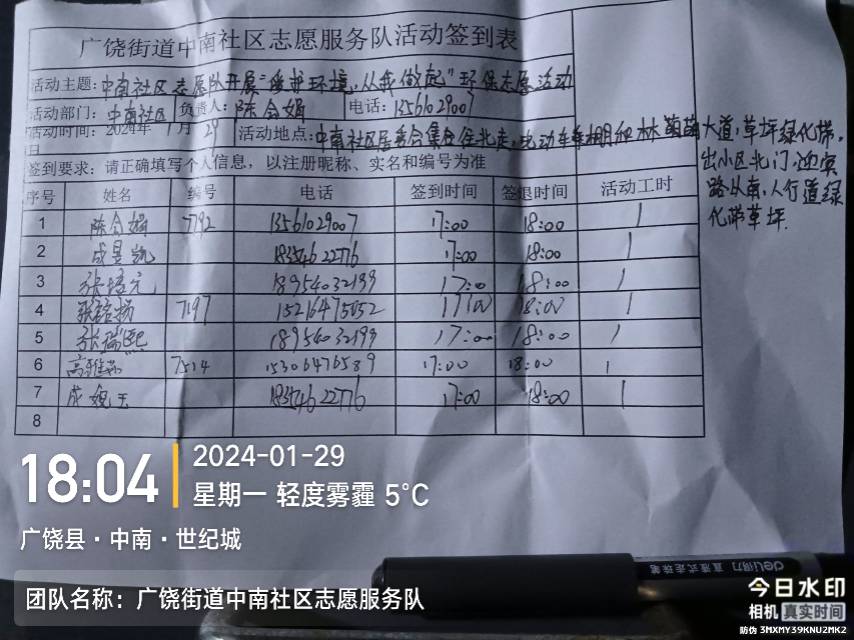 广饶街道中南社区志愿服务队活动签到表
活动主题:中南社区志愿队开展“爱护环境,从我做起”环保志愿活动
活动部门:中南社区 负责人:陈会娟 电话:13561029007
活动时间:2024年1月29日 活动地点:中南社区居委会集合往北走,电动车车棚和 大道,草坪绿化带,
出小区北门,迎宾
路从南,人行道绿
化带草坪.
签到要求:请正确填写个人信息,以注册昵称、实名和编号为准
序号 姓名 编号 电话 签到时间 签退时间 活动工时
1 陈会娟 7792 13561029007 17:00 18:00 1
2 成昱凯 18354622776 17:00 18:00 1
3 张培元 18954032199 17:00 18:00 1
4 张铭扬 7197 15216475052 17:00 18:00 1
5 张瑞熙 18954032199 17:00 18:00 1
6 高雅茹 7514 15306476589 17:00 18:00 1
7 成婉玉 18354622776 17:00 18:00 1
8
18:04
2024-01-29
星期一 轻度雾霾 5℃
广饶县·中南·世纪城
团队名称:广饶街道中南社区志愿服务队
deli得力 直液式走珠笔
今日水印
相机 真实时间
防伪 3MXMY39KNU2MK2